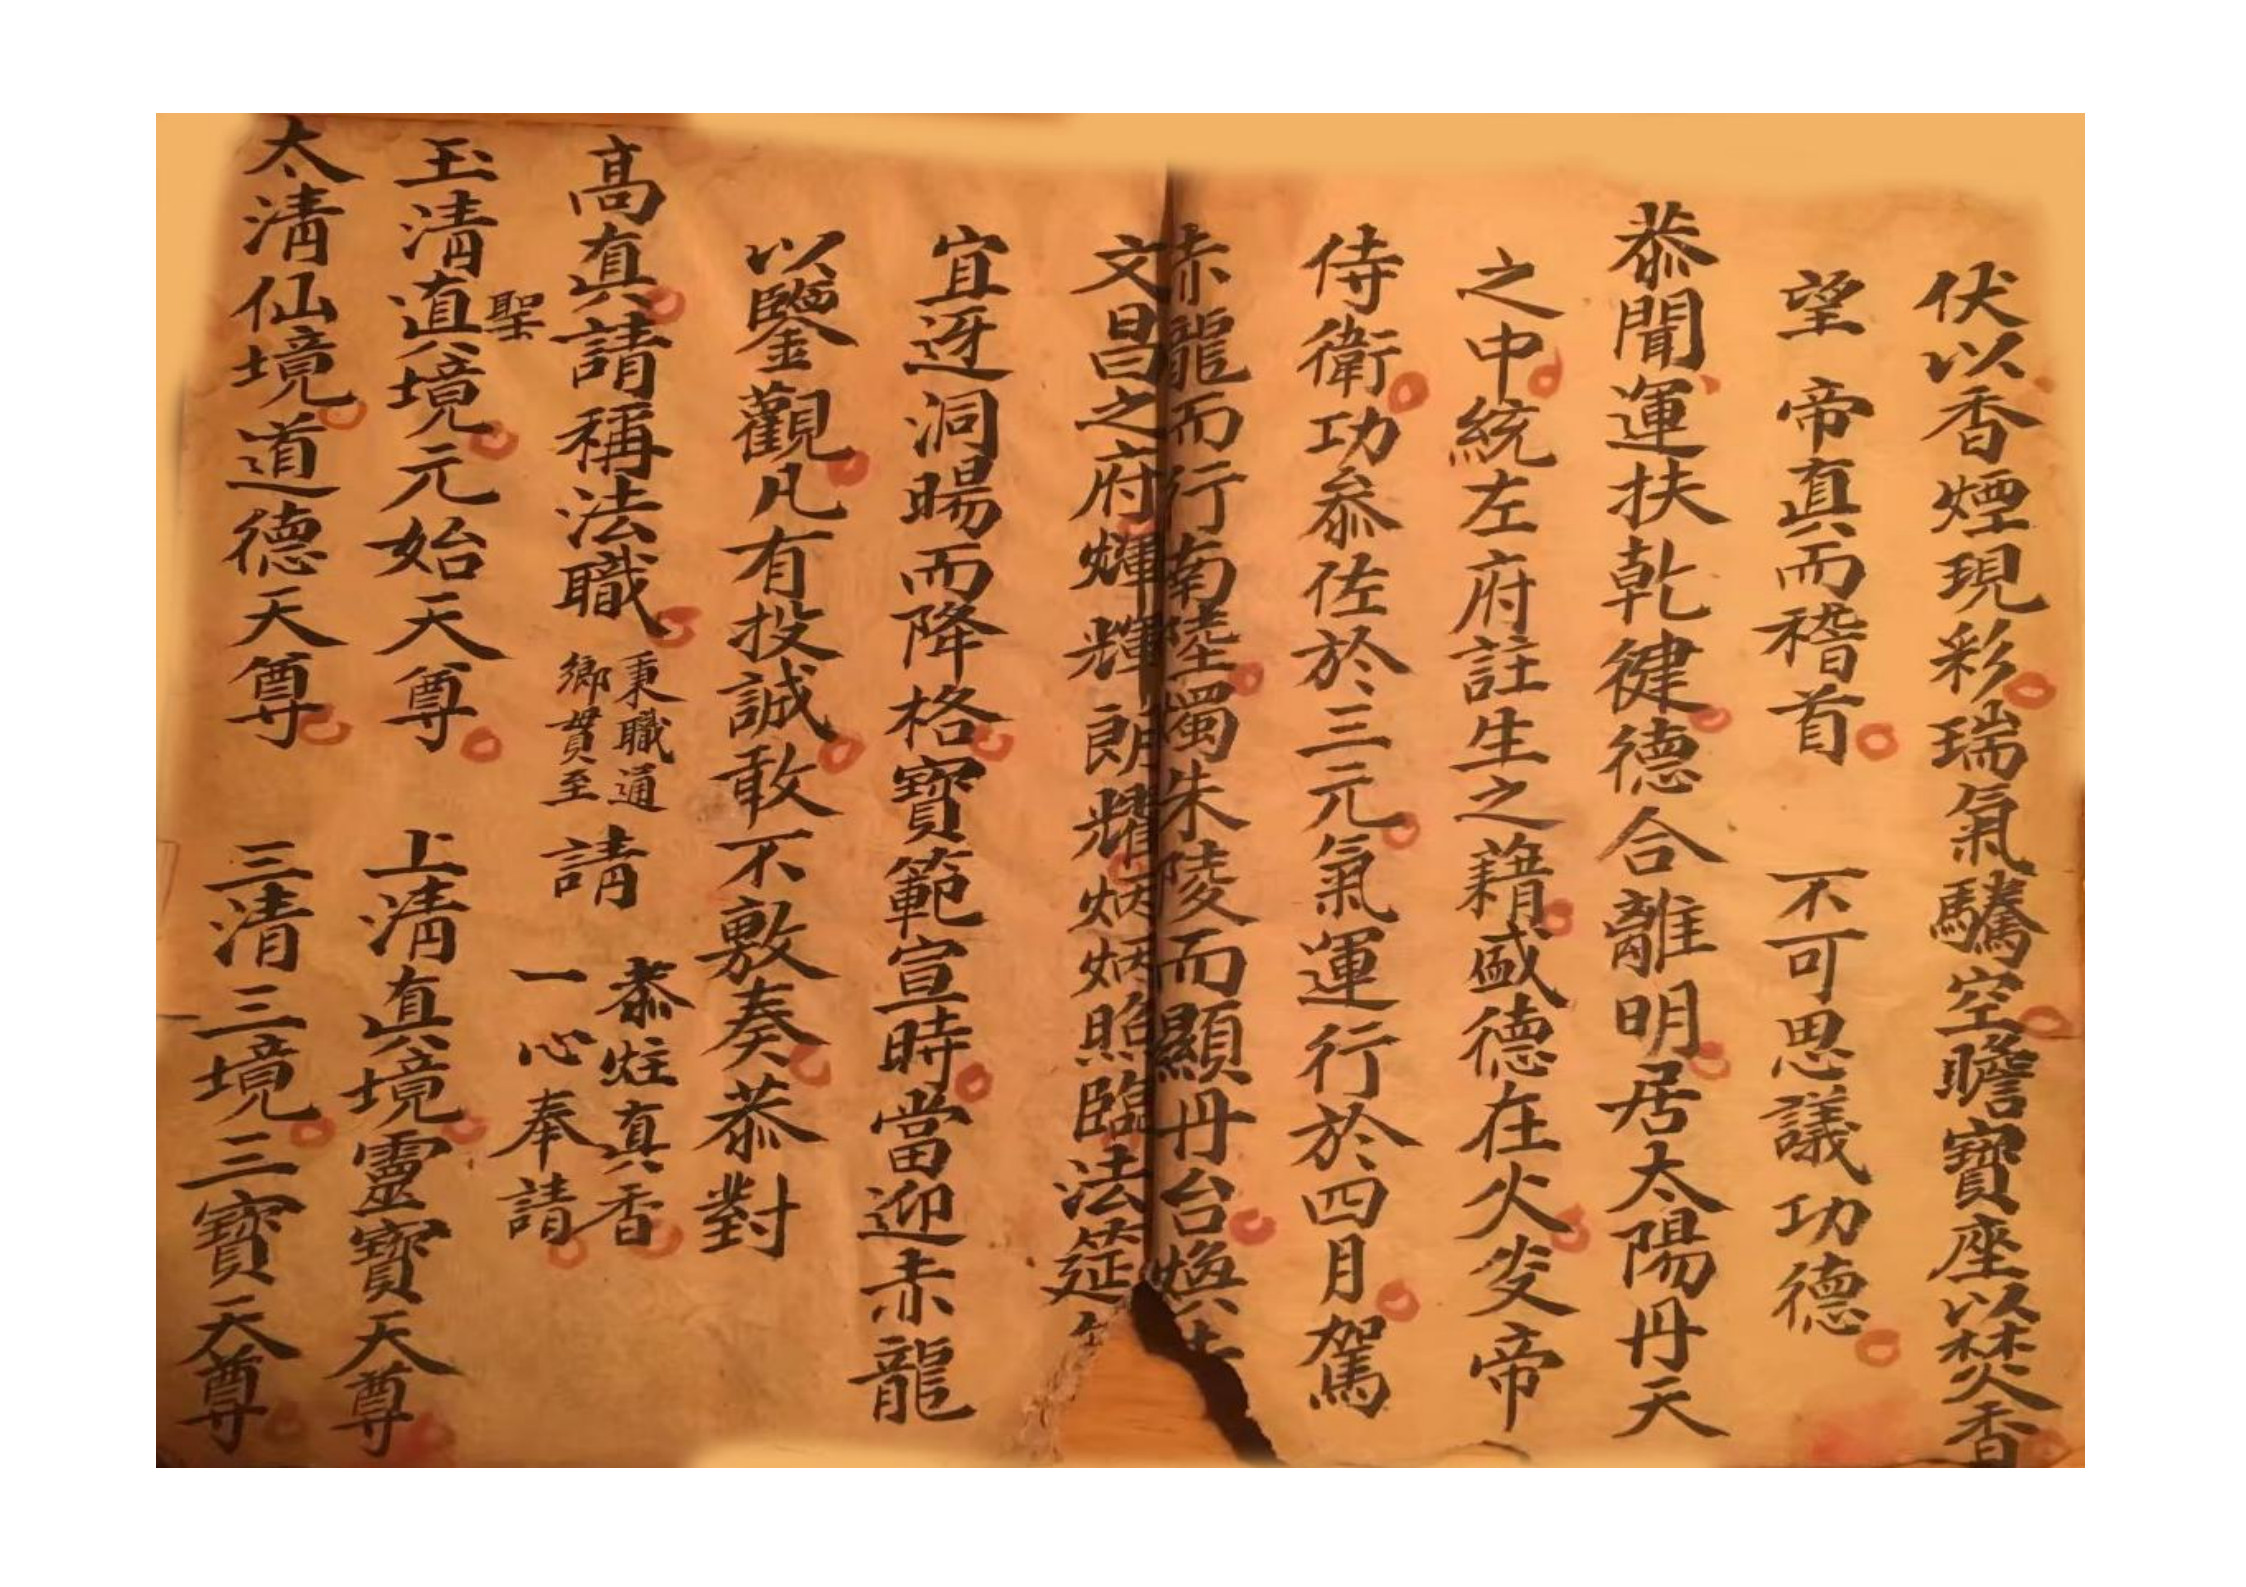 伏以香煙現彩瑞氣騰空瞻寶座以焚香
望 帝真而稽首 不可思議功德
恭聞運扶乾健德合離明居太陽丹天
之中統左府註生之籍盛德在火炎帝
侍衛功叅佐於三元氣運行於四月駕
赤龍而行南陸燭朱陵而顯丹台煥
文昌之府輝輝朗耀炳炳照臨法筵
宜迓洞暘而降格寶範宣時當迎赤龍
以鑒觀凡有投誠敢不敷奏恭對
高真請稱法職 秉職通鄉貫至 請 恭炷真香一心奉請
玉清真境元始天尊 上清真境靈寶天尊
聖
太清仙境道德天尊 三清三境三寶天尊